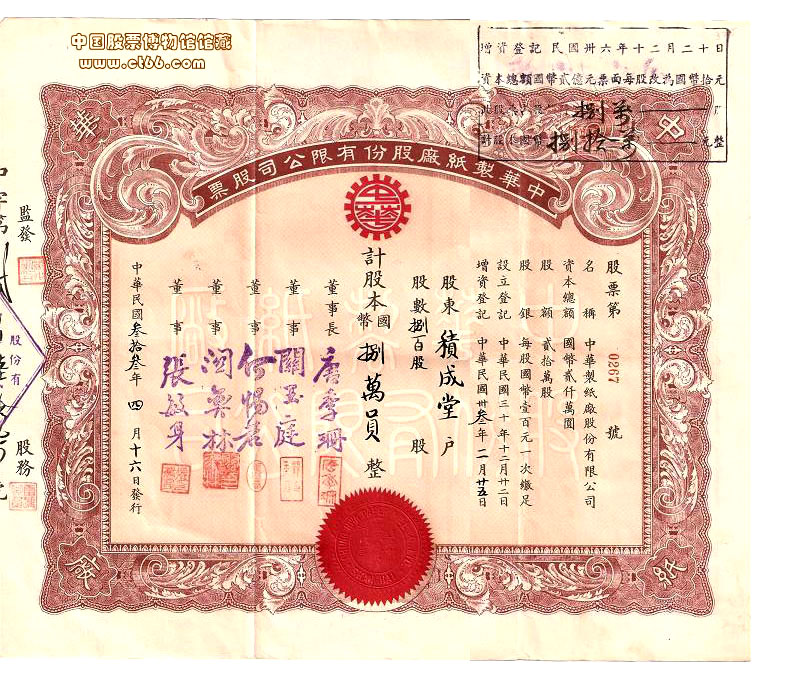 中国股票博物馆馆藏
www.ct66.com
增資登記 民國卅六年十二月二十日
資本總額國幣貳億元票面每股改為國幣拾元
捌萬
捌拾萬 元整
中
華
紙
廠
中華製紙廠股份有限公司股票
股票第 0267 號
名稱 中華製紙廠股份有限公司
資本總額 國幣貳仟萬圓
股額 貳拾萬股
股銀 每股國幣壹百元一次繳足
設立登記 中華民國三十年十二月廿二日
增資登記 中華民國卅叁年二月廿五日
股東 積成堂 戶
股數 捌百股 股
計股本國幣 捌萬員 整
董事長 唐季珊
董事 關玉庭
董事 何惕若
董事
董事 張
中華民國叁拾叁年四月十六日發行
監發
股務
股份有